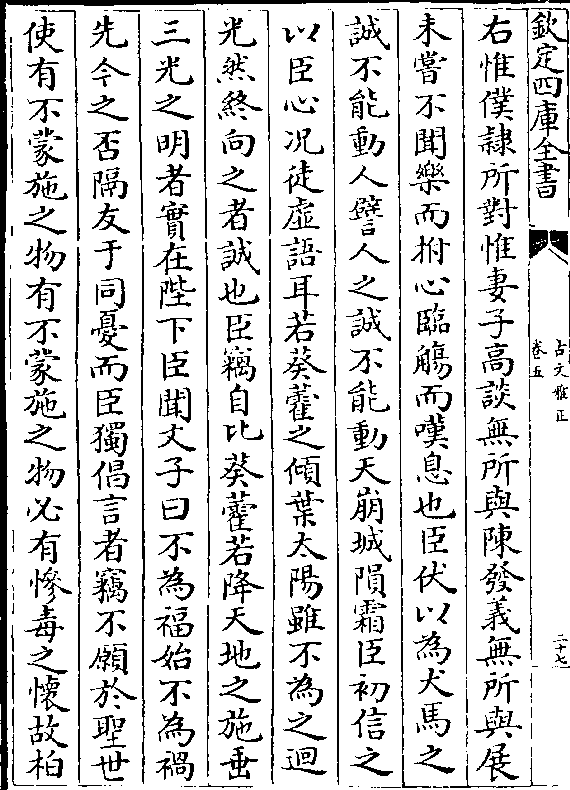 欽定四庫全書
古文雅正
卷五
二十七
右惟僕隸所對惟妻子高談無所與陳發義無所與展
未嘗不聞樂而拊心臨觴而嘆息也臣伏以為犬馬之
誠不能動人譬人之誠不能動天崩城隕霜臣初信之
以臣心况徒虛語耳若葵藿之傾葉太陽雖不為之迴
光然終向之者誠也臣竊自比葵藿若降天地之施垂
三光之明者實在陛下臣聞文子曰不為福始不為禍
先今之否隔友于同憂而臣獨倡言者竊不願於聖世
使有不蒙施之物有不蒙施之物必有慘毒之懷故柏